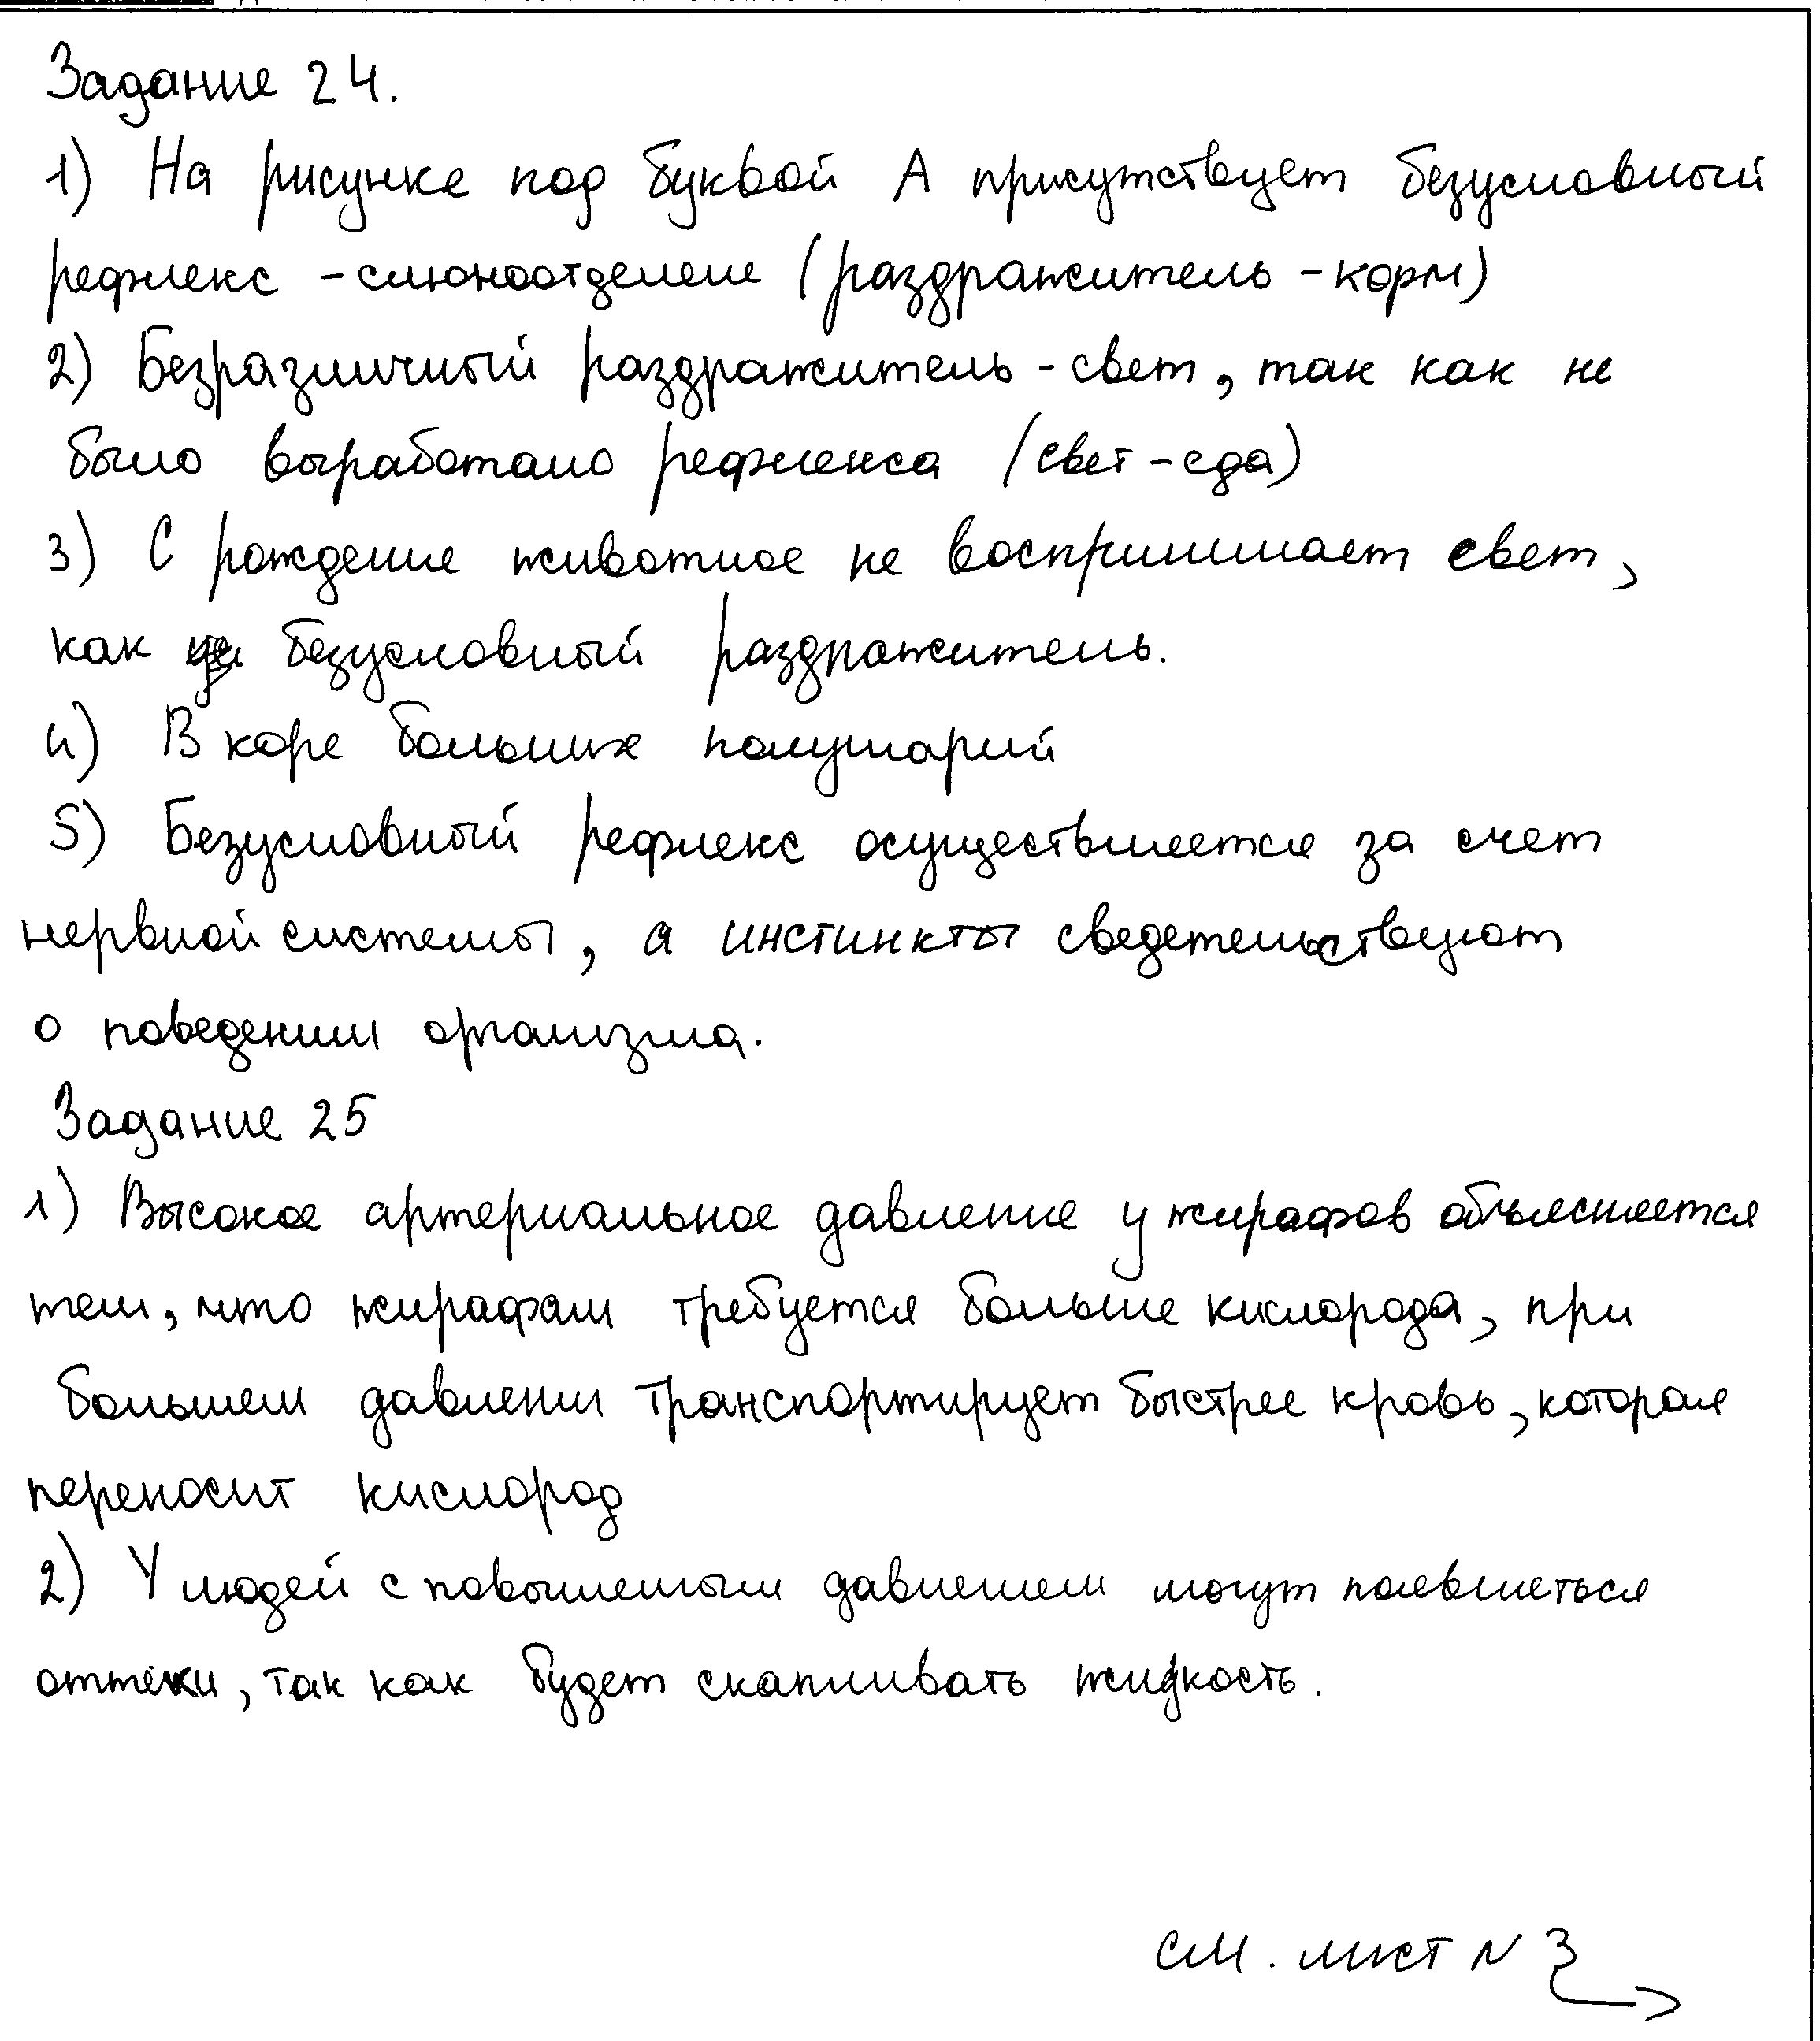 Задание 24.
1) На рисунке под буквой А присутствует безусловный
рефлекс - слюноотделение (раздражитель - корм)
2) Безразличный раздражитель - свет, так как не
было выработано рефлекса (свет - еда)
3) С рождение животное не воспринимает свет,
как безусловный раздражитель.
4) В коре больших полушарий
5) Безусловный рефлекс осуществляется за счет
нервной системы, а инстинкты сведетельствуют
о поведении организма.
Задание 25
1) Высокое артериальное давление у жирафов объясняется
тем, что жирафам требуется больше кислорода, при
большем давлении транспортирует быстрее кровь, которая
переносит кислород
2) У людей с повышенным давлением могут появляться
оттеки, так как будет скапливать жидкость.
см. лист N 3